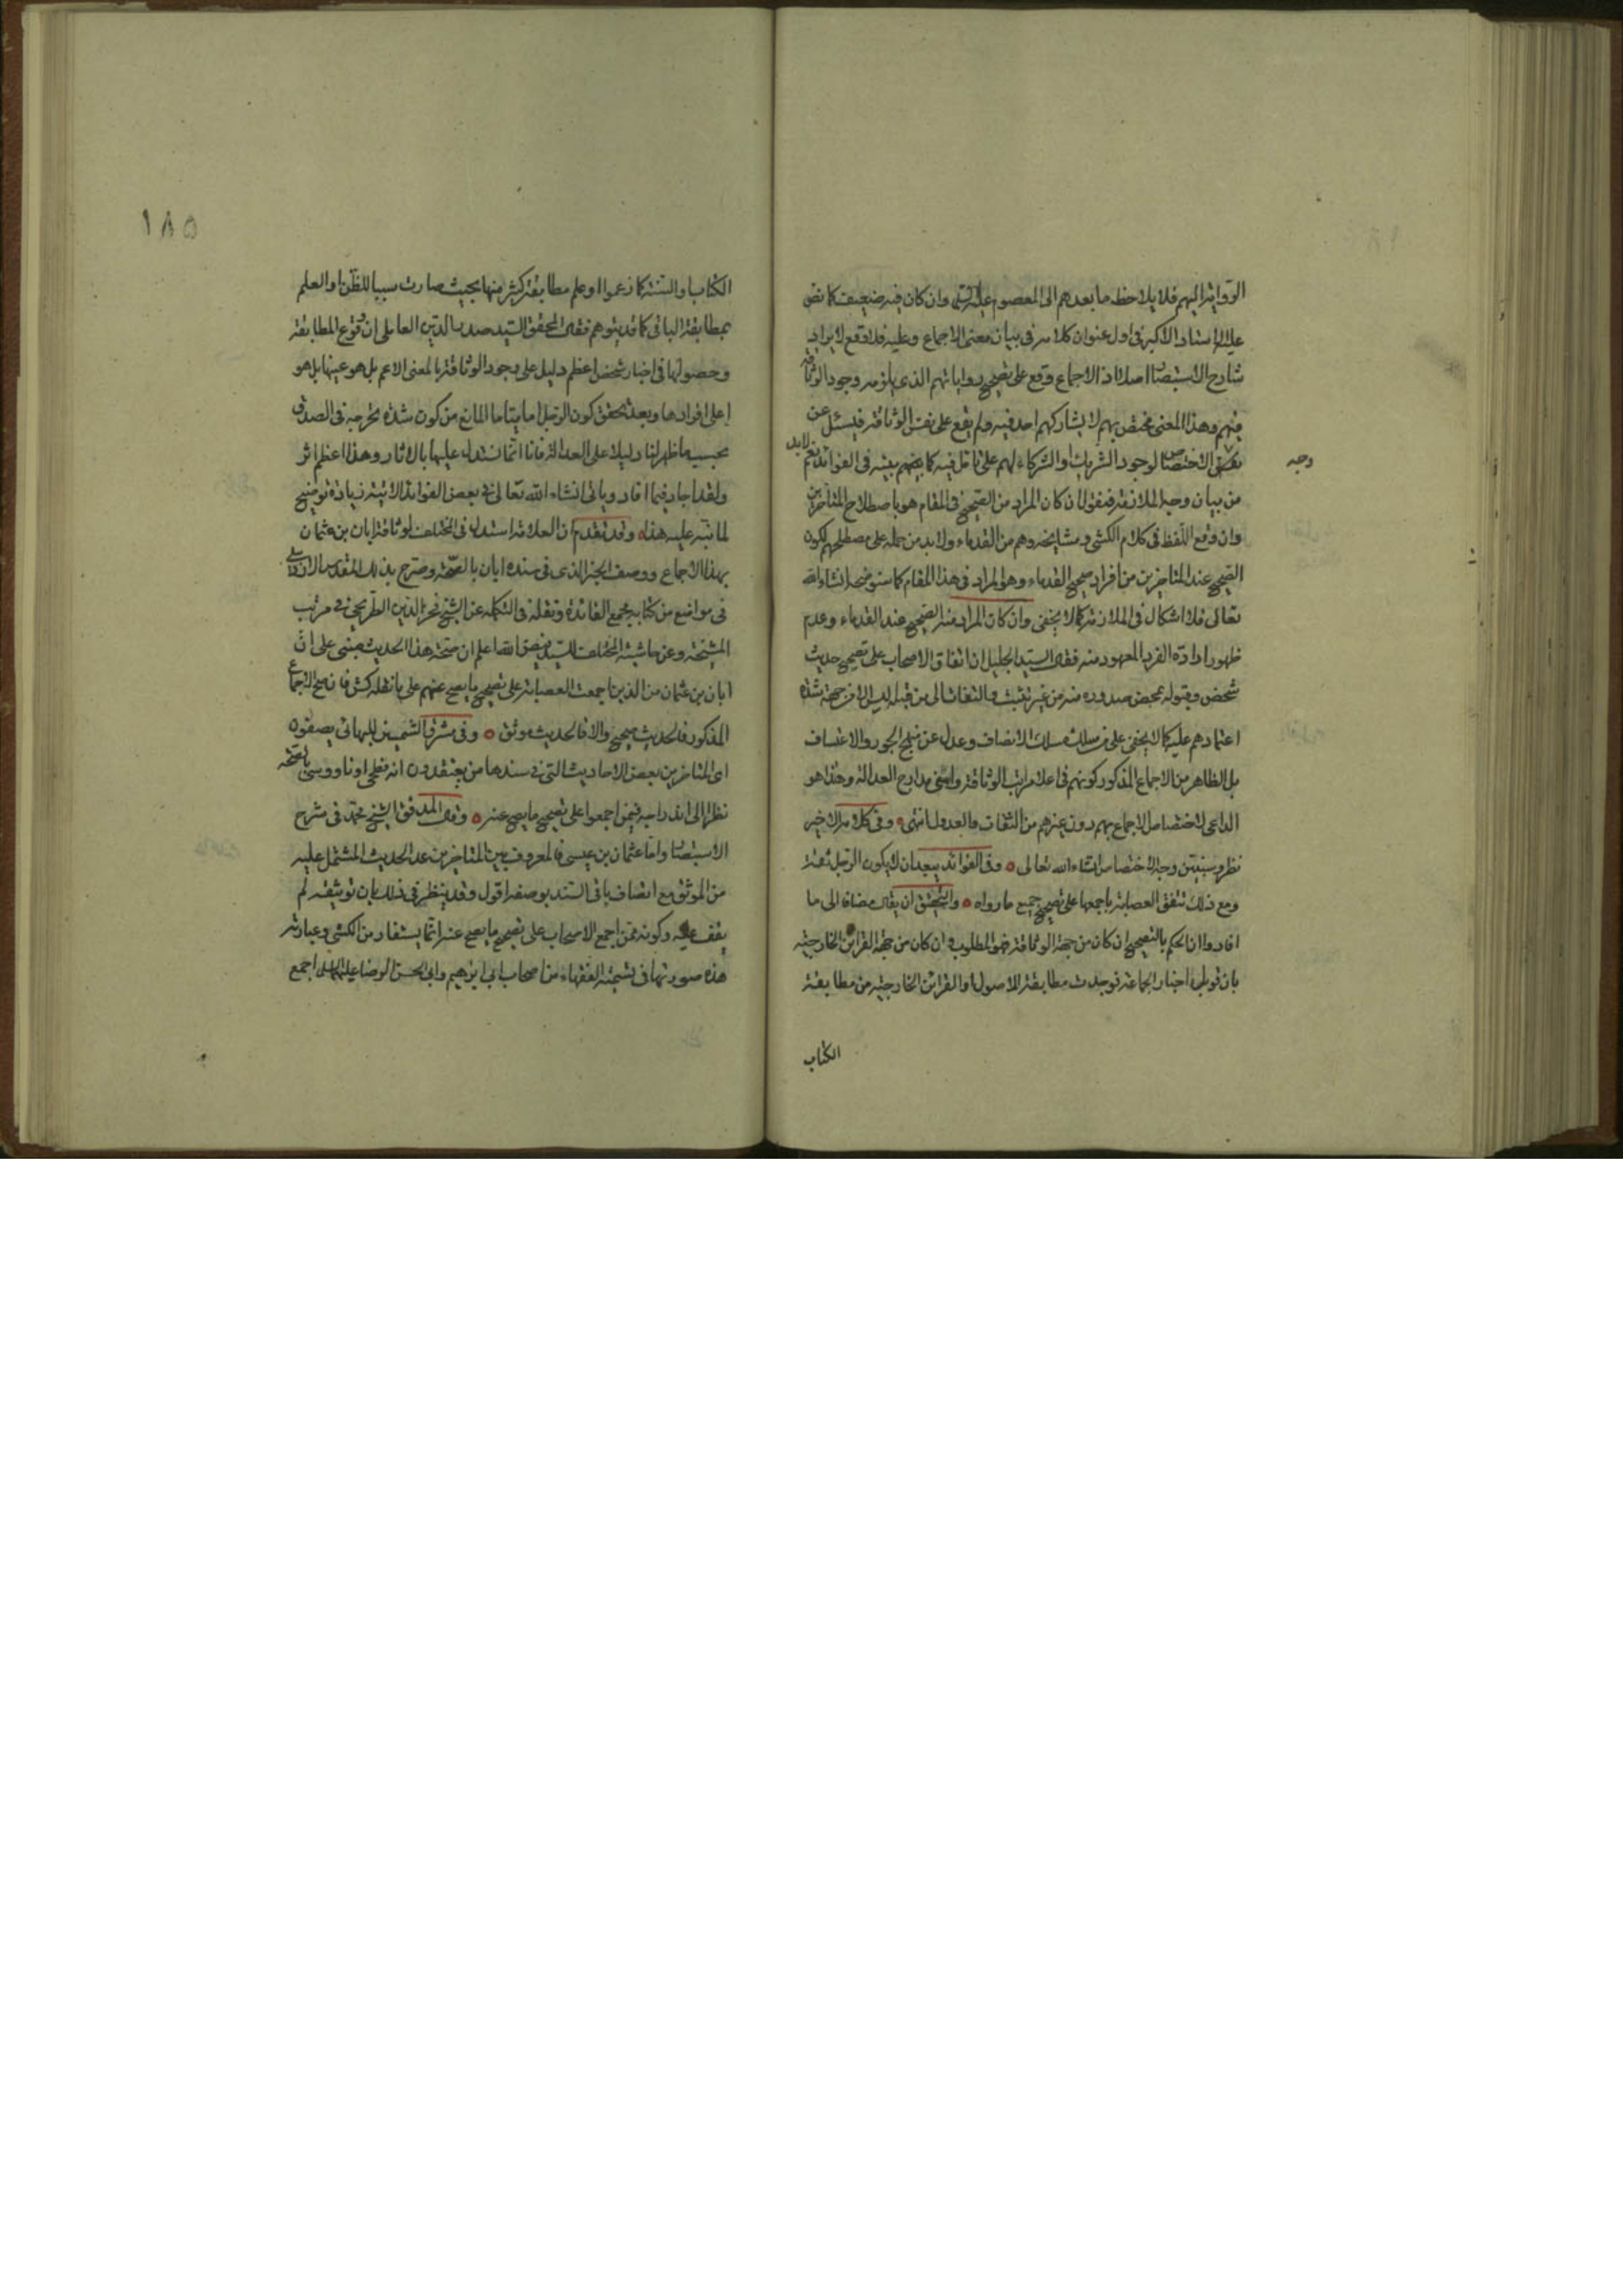 الرواية اليهم فلا يلاحظ ما بعدهم الى المعصوم عليه السلم وان كان فيه ضعيف كما نص
عليه الاستاد الاكبر فى اول عنوان كلامه فى بيان معنى الاجماع وعليه فلا وقع لايراد
شارح الاستبصار اصلا اذ الاجماع وقع على تصحيح رواياتهم الذى يلزمه وجود الوثاقة
فيهم وهذا المعنى مختص بهم لا يشاركهم احد فيه ولم يقع على نفس الوثاقة فيسئل عن
وجه
الاختصاص لوجود الشريك او الشركاء لهم على تامل فيه كما ينبهم بيته فى الفوائد نعم لابد
من بيان وجه الملازمة فنقول ان كان المراد من الصحيح فى المقام هو باصطلاح المتأخرين
وان وقع اللفظ فى كلام الكشى ومشايخه وهم من القدماء ولابد من حمله على مصطلحهم لكون
الصحيح عند المتاخرين من أفراد صحيح القدماء وهو المراد فى هذا المقام كما سنوضحه انشاء الله
تعالى فلا اشكال فى الملازمة كما لا يخفى وان كان المراد منه الصحيح عند القدماء وعدم
ظهور ارادة الفرد المعهود منه فقال السيد الجليل ان اتفاق الاصحاب على تصحيح حديث
شخص وقبوله بمحض صدوره منه من غير تثبت والتفات الى من قبله ليس الا من جهة شدة
اعتمادهم عليه كما لا يخفى على من سلك مسلك الانصاف وعدل عن منهج الجور والاعتساف
بل الظاهر من الاجماع المذكور كونهم فى اعلا مراتب الوثاقة واسنى مدارج العدالة وهذا هو
الداعى لاختصاص الاجماع بهم دون غيرهم من الثقات والعدول انتهى وفى كلامه الاخير
نظر وسنبين وجه الاختصاص انشاء الله تعالى وفى الفوائد يبعد ان لا يكون الرجل ثقة
ومع ذلك تتفق العصابة باجمعها على تصحيح جميع ما رواه والتحقيق ان يقال مضافا الى ما
افادوا ان الحكم بالتصحيح ان كان من جهة الوثاقة فهو المطلوب وان كان من جهة القرائن الخارجية
بان قوبلت اخبار الجماعة فوجدت مطابقة للاصول او القرائن الخارجية من مطابقة
الكتاب
١٨٥
الكتاب او السنة كما زعموا او علم مطابقة كثير منها بحيث صارت سببا للظن او العلم
بمطابقة الباقى كما قد يتوهم فقال المحقق السيد صدر الدين العاملى ان وقوع المطابقة
وحصولها فى اخبار شخص اعظم دليل على وجود الوثاقة بالمعنى الاعم بل هو عينها بل هو
اعلى افرادها وبعد تحقق كون الرجل اماميا ما المانع من كون شدة تحرجه فى الصدق
بحسب ما ظهر لنا دليلا على العدالة فانا انما نستدل عليها بالاثار وهذا اعظم اثر
ولقد اجاد فيما افاد وياتى انشاء الله تعالى فى بعض الفوائد الاتية زيادة توضيح
لما نبه عليه هذا وقد تقدم ان العلامة استدل فى المختلف لوثاقة ابان بن عثمان
بهذا الاجماع ووصف الخبر الذى فى سنده ابان بالصحة وصرح بذلك المقدس الاردبيلى
فى مواضع من كتابه مجمع الفائدة ونقله فى التكملة عن الشيخ فخر الدين الطريحى فى مرتب
المشيخة وعن حاشية المختلف للسيد فيض الله اعلم ان صحة هذا الحديث مبنى على ان
ابان بن عثمان من الذين اجمعت العصابة على تصحيح ما يصح عنهم على ما نقله كش فان صح الاجماع
المذكور فالحديث صحيح والا فالحديث موثق وفى مشرق الشمسين للبهائى يصفون
اى المتاخرين بعض الاحاديث التى فى سندها من يعتقدون انه فطحى او ناووسى بالصحة
نظرا الى اندراجه فيمن اجمعوا على تصحيح ما يصح عنه وقال المدقق الشيخ محمد فى شرح
الاستبصار واما عثمان بن عيسى فالمعروف بين المتاخرين عد الحديث المشتمل عليه
من الموثق مع اتصاف باقى السند بوصفه اقول وقد ينظر فى ذلك بان توثيقه لم
يقف عليه وكونه ممن اجمع الاصحاب على تصحيح ما يصح عنه انما يستفاد من الكشى وعبارته
هذه صورتها فى تسمية الفقهاء من اصحاب ابى ابرهيم وابى الحسن الرضا عليهما السلم اجمع